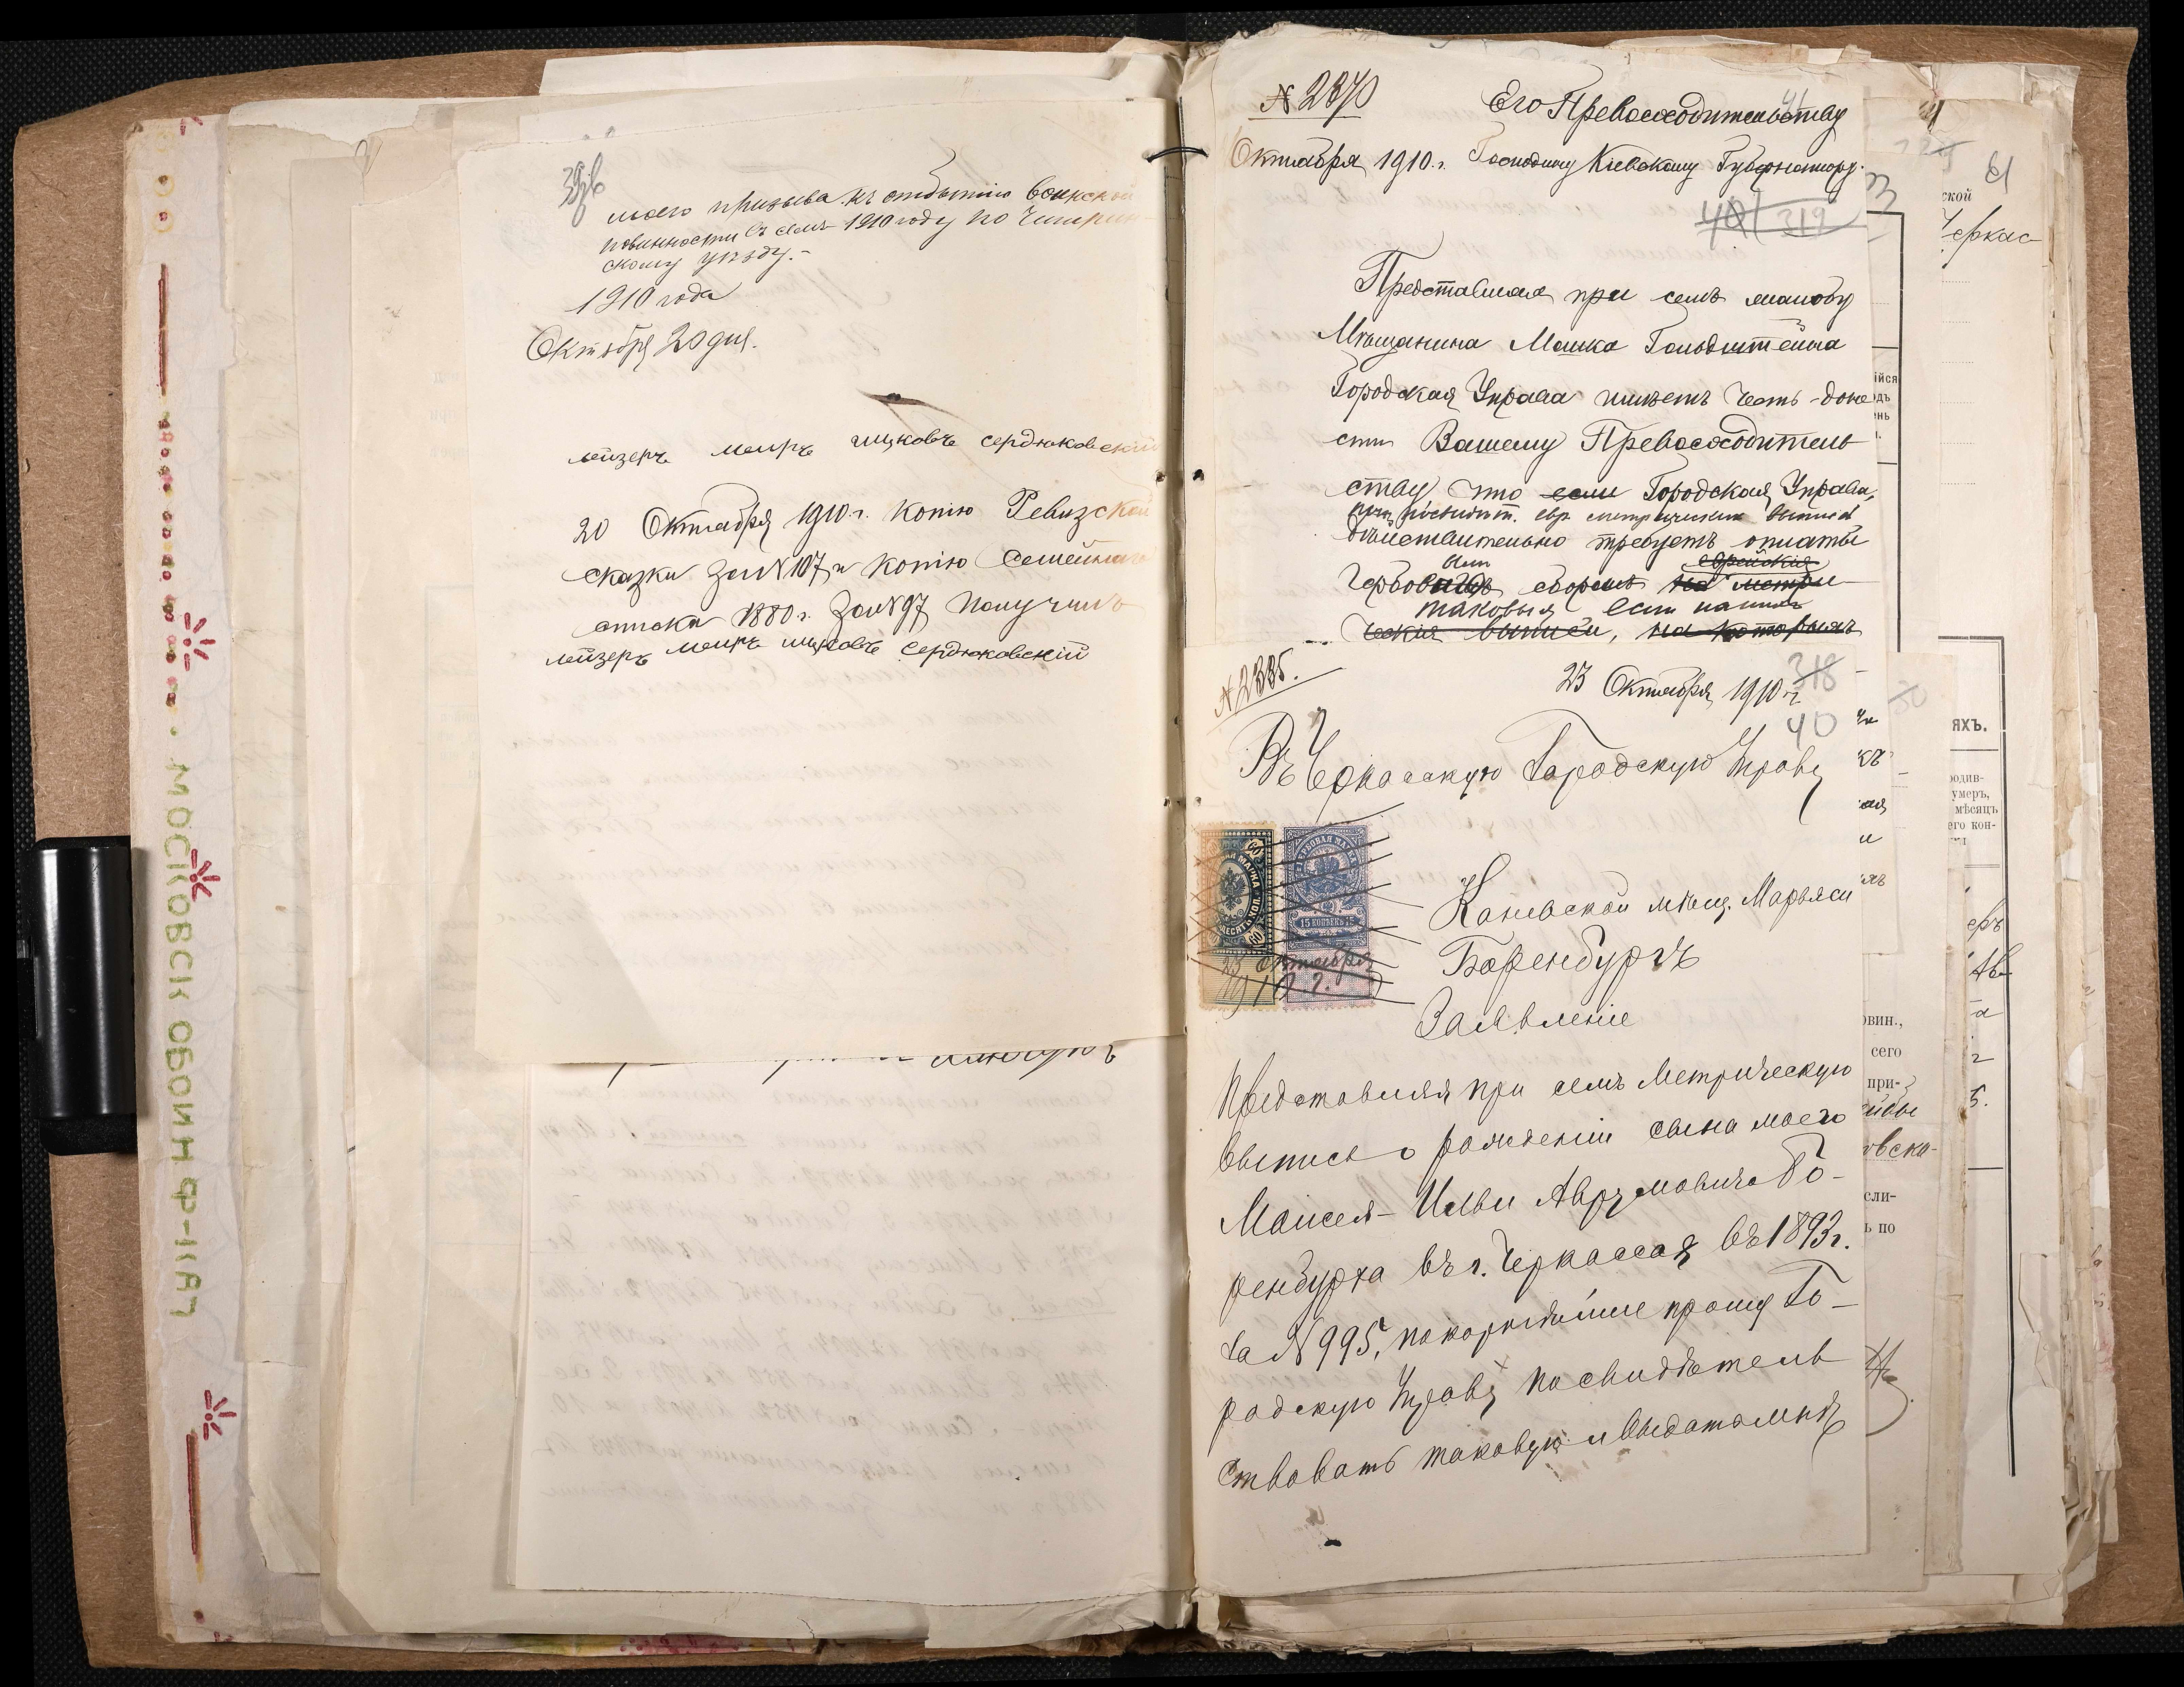 39 об
моего призыва къ отбытію воинской
повинности въ семъ 1910 году по Чигирин-
скому уѣзду.-
1910 года
Октября 20 дня.
лейзеръ меиръ ицковъ сердюковскій
20 Октября 1910 г. копію Ревизской
сказки за №107 и копію Семейнаго
списка 1880 г. за №97 получилъ
лейзеръ меиръ ицковъ сердюковскій
МОСКОВСК ОБОЙН Ф-КА
№ 2370
Его Превосходительству
41
Октября 1910 г. Господину Кіевскому Губернатору.
40 319
Представляя при семъ жалобу
Мѣщанина Мошка Гольдштейна
Городская Управа имѣетъ честь доне
сти Вашему Превосходитель
ству что если Городская Управа,
при евр. метрическихъ выписей
дѣйствительно требуетъ оплаты
Гербовымъ сборомъ на метри
еврейскія
таковыя если на нихъ
ческія выписи, на которыхъ
№ 2335.
23 Октября 1910 г.
318
40
Въ Черкасскую Городскую Управу
ГЕРБОВАЯ МАРКА
15 КОПѢЕКЪ 15
60
23 октября
1910 г.
Каневской мѣщ. Марьяси
Боренбургъ
Заявленіе
Представляя при семъ Метрическую
выпись о рожденіи сына моего
Моисея-Ильи Абрумовича Бо-
ренбурга въ г. Черкассах въ 1893 г.
за № 995, покорнѣйше прошу Го-
родскую Управу посвидѣтель
ствовать таковую и выдать мнѣ
61
ской
Черкас
яхъ.
родив-
умеръ,
мѣсяцъ
его кон-
овин.,
сего
при-
сли-
ь по